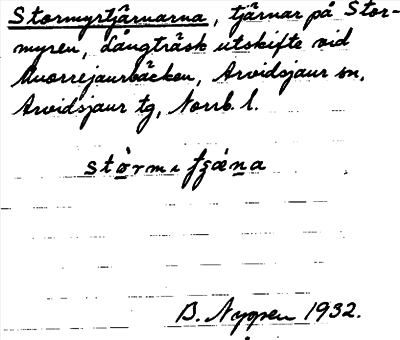 Stormyrtjärnarna, tjärnar på Stor-
myren, Långträsk utskifte vid
Muorrejaurbäcken, Arvidsjaur sn,
Arvidsjaur tg, Norrb. l.
B. Nygren 1932.